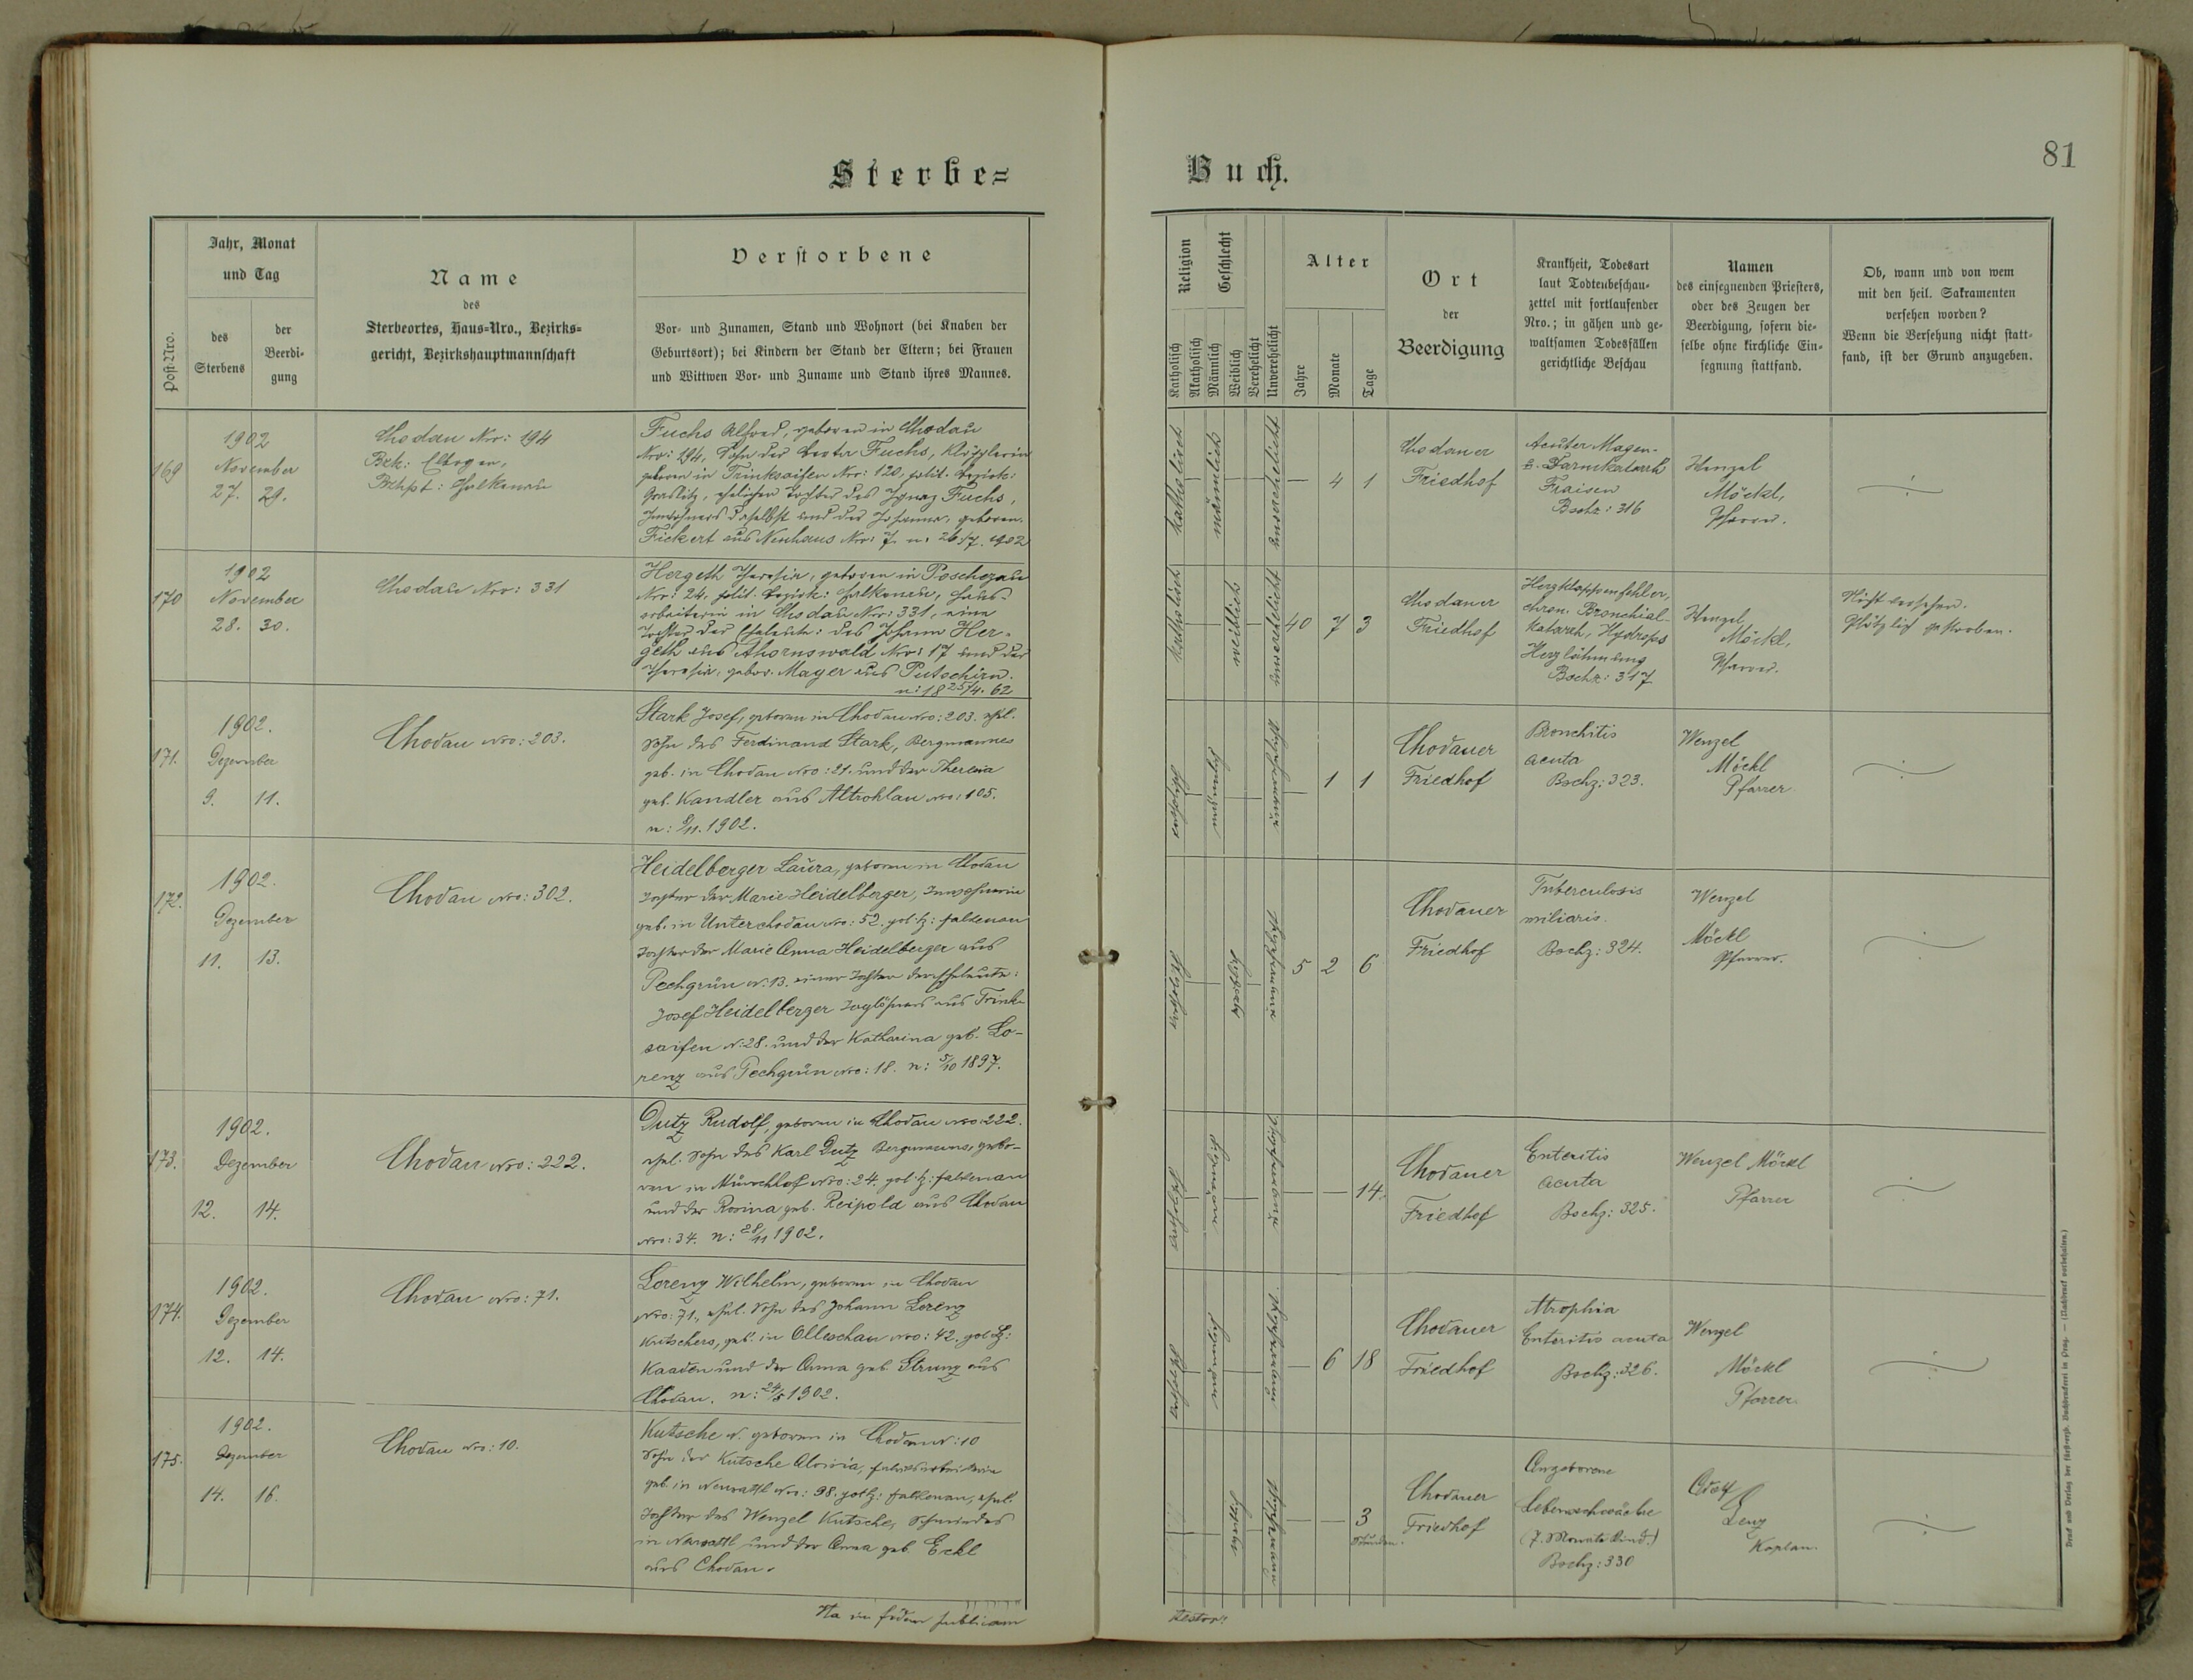 81
Sterbe=
Buch.
Post-Nro.
Jahr, Monat
und Tag
des
Sterbens
der
Beerdi-
gung
Name
des
Sterbeortes, Haus-Nro., Bezirks-
gericht, Bezirkshauptmannschaft
Verstorbene
Vor- und Zunamen, Stand und Wohnort (bei Knaben der
Geburtsort); bei Kindern der Stand der Eltern; bei Frauen
und Wittwen Vor- und Zuname und Stand ihres Mannes.
Religion
Katholisch
Akatholisch
Geschlecht
Männlich
Weiblich
Verehelicht
Unverehelicht
Alter
Jahre
Monate
Tage
Ort
der
Beerdigung
Krankheit, Todesart
laut Todtenbeschau-
zettel mit fortlaufender
Nro.; in gähen und ge-
waltsamen Todesfällen
gerichtliche Beschau
Namen
des einsegnenden Priesters,
oder des Zeugen der
Beerdigung, sofern die-
selbe ohne kirchliche Ein-
segnung stattfand.
Ob, wann und von wem
mit den heil. Sakramenten
versehen worden?
Wenn die Versehung nicht statt-
fand, ist der Grund anzugeben.
169
1902
November
27. 29.
Chodau Nro: 194
Bzk: Elbogen,
Bzhpt: Falkenau
Fuchs Alfred, geboren in Chodau
Nro: 194, Sohn der Berta Fuchs, Klöpplerin
geboren in Trinksaifen Nro: 120, polit. Bezirk:
Graslitz, ehelichen Tochter des Ignaz Fuchs,
Inwohners daselbst und der Johanna, geboren.
Fickert aus Neuhaus Nro: 7. n: 26/7. 902
katholisch
männlich
unverehelicht
— 4 1
Chodauer
Friedhof
Acuter Magen-
u. Darmkatarrh
Fraisen
Bschz: 316
Wenzel
Möckl,
Pfarrer.
170
1902
November
28. 30.
Chodau Nro: 331
Hergeth Theresia, geboren in Poschezau
Nro: 24. polit. Bezirk: Falkenau,
arbeiterin in Chodau Nro: 331, eine
Tochter der Eheleute: des Johann Her-
geth aus Ahornswald Nro: 17 und der
Theresia, gebor. Mayer aus Putschirn.
n: 18 25/4. 62
katholisch
weiblich
unverehelicht
40 7 3
Chodauer
Friedhof
Herzklappenfehler,
chron. Bronchial-
katarrh, Hydrops
Herzlähmung
Bschz: 317
Wenzel
Möckl,
Pfarrer.
Nicht versehen.
Plötzlich gestorben.
171.
1902.
Dezember
9. 11.
Chodau Nro: 203.
Stark Josef, geboren in Chodau Nro: 203. ehel.
Sohn des Ferdinand Stark, Bergmannes
geb. in Chodau Nro: 21. und der Theresia
geb. Kandler aus Altrohlau Nro: 105.
n: 8/11. 1902.
katholisch
männlich
unverehelicht
— 1 1
Chodauer
Friedhof
Bronchitis
acuta
Bschz: 323.
Wenzel
Möckl
Pfarrer
172.
1902.
Dezember
11. 13.
Chodau Nro: 302.
Heidelberger Laura, geboren in Chodau
Tochter der Marie Heidelberger, Inwohnerin
geb. in Unterchodau Nro: 52. pol. Bz: Falkenau
Tochter der Marie Anna Heidelberger aus
Pechgrün N: 13. einer Tochter der Eheleute:
Josef Heidelberger Taglöhners aus Trink-
saifen N: 28. und der Katharina geb. Lo-
renz aus Pechgrün Nro: 18. n: 5/10 1897.
katholisch
weiblich
unverehelicht
5 2 6
Chodauer
Friedhof
Tuberculosis
miliaris.
Bschz: 324.
Wenzel
Möckl
Pfarrer.
173.
1902.
Dezember
12. 14.
Chodau Nro: 222.
Dutz Rudolf, geboren in Chodau Nro: 222.
ehel. Sohn des Karl Dutz Bergmanns, gebo-
ren in Münchhof Nro: 24. pol. Bz: Falkenau
und der Rosina geb. Reipold aus Chodau
Nro: 34. n: 28/11 1902.
katholisch
männlich
unverehelicht
— — 14.
Chodauer
Friedhof
Enteritis
acuta
Bschz: 325.
Wenzel Möckl
Pfarrer
174.
1902.
Dezember
12. 14.
Chodau Nro: 71.
Lorenz Wilhelm, geboren in Chodau
Nro: 71., ehel. Sohn des Johann Lorenz
Kutschers, geb. in Olleschau Nro: 42. pol. Bz:
Kaaden und der Anna geb. Strunz aus
Chodau. n: 24/5 1902.
katholisch
männlich
unverehelicht
— 6 18
Chodauer
Friedhof
Atrophia
Enteritis acuta
Bschz: 326.
Wenzel
Möckl
Pfarrer
175.
1902.
Dezember
14. 16.
Chodau Nro: 10.
Kutsche N. geboren in Chodau N: 10
Sohn der Kutsche Aloisia, Fabriksarbeiterin
geb. in Neusattl Nro: 98. pol. Bz: Falkenau, ehel.
Tochter des Wenzel Kutsche, Schmiedes
in Neusattl und der Anna geb. Eckl
aus Chodau.
weiblich
unverehelicht
— — 3
Stunden.
Chodauer
Friedhof
Angeborene
Lebensschwäche
(7. Monate Kind.)
Bschz: 330
Adolf
Lenz
Kaplan.
Ita in fidem publicam
testor:
Druck und Verlag der fürst-erzb. Buchdruckerei in Prag. — (Nachdruck vorbehalten.)